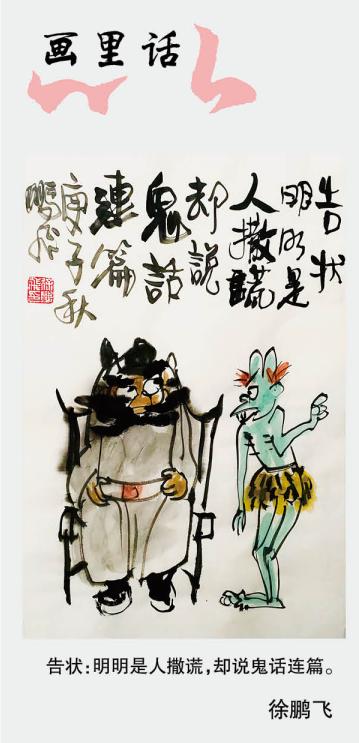 画里话
告状
明明是
人撒謊
却説
鬼話
連篇
庚子秋
鵬飛
告状:明明是人撒谎,却说鬼话连篇。
徐鹏飞